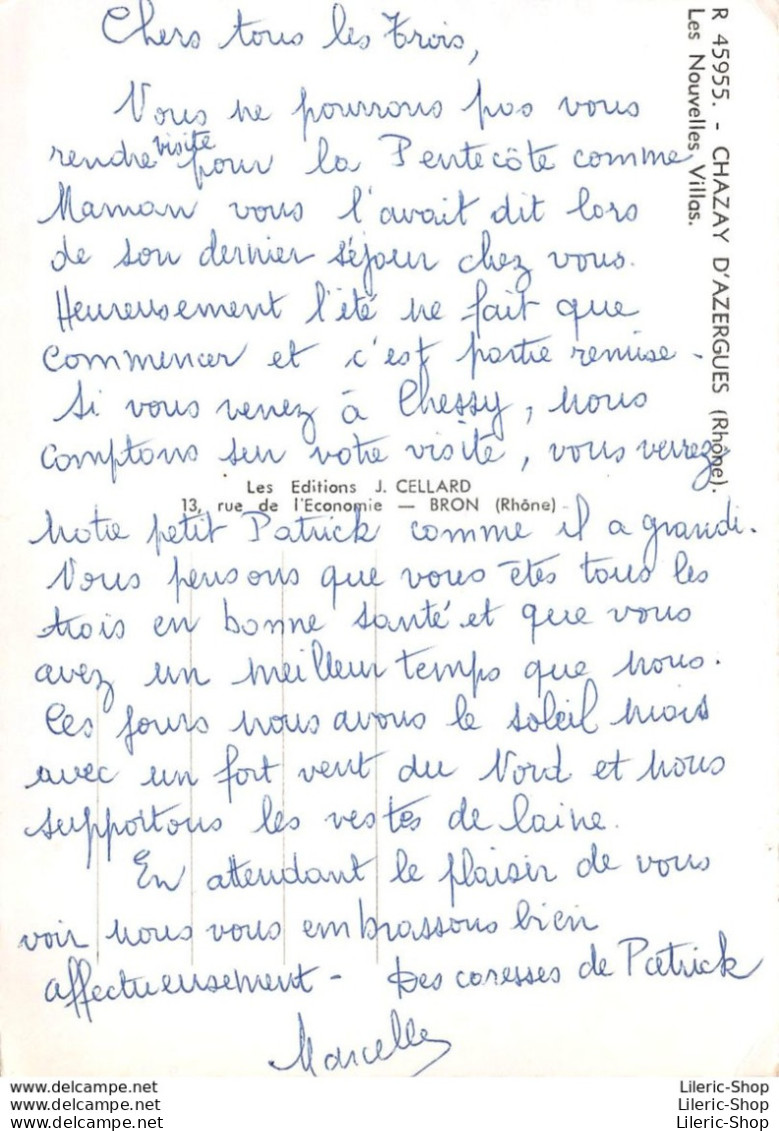 Chers tous les trois,
Nous ne pourrons pas vous
rendre visite pour la Pentecôte comme
Maman vous l'avait dit lors
de son dernier séjour chez vous.
Heureusement l'été ne fait que
commencer et c'est partie remise.
Si vous venez à Chessy, nous
comptons sur votre visite, vous verrez
notre petit Patrick comme il a grandi.
Nous pensons que vous êtes tous les
trois en bonne santé et que vous
avez un meilleur temps que nous.
Ces jours nous avons le soleil mais
avec un fort vent du Nord et nous
supportons les vestes de laine.
En attendant le plaisir de vous
voir nous vous embrassons bien
affectueusement - Des caresses de Patrick
Marcelle
R 45955. - CHAZAY D'AZERGUES (Rhône).
Les Nouvelles Villas.
Les Editions J. CELLARD
13, rue de l'Economie — BRON (Rhône)
https://www.delcampe.net
https://www.delcampe.net
https://www.delcampe.net
Lileric-Shop
Lileric-Shop
Lileric-Shop